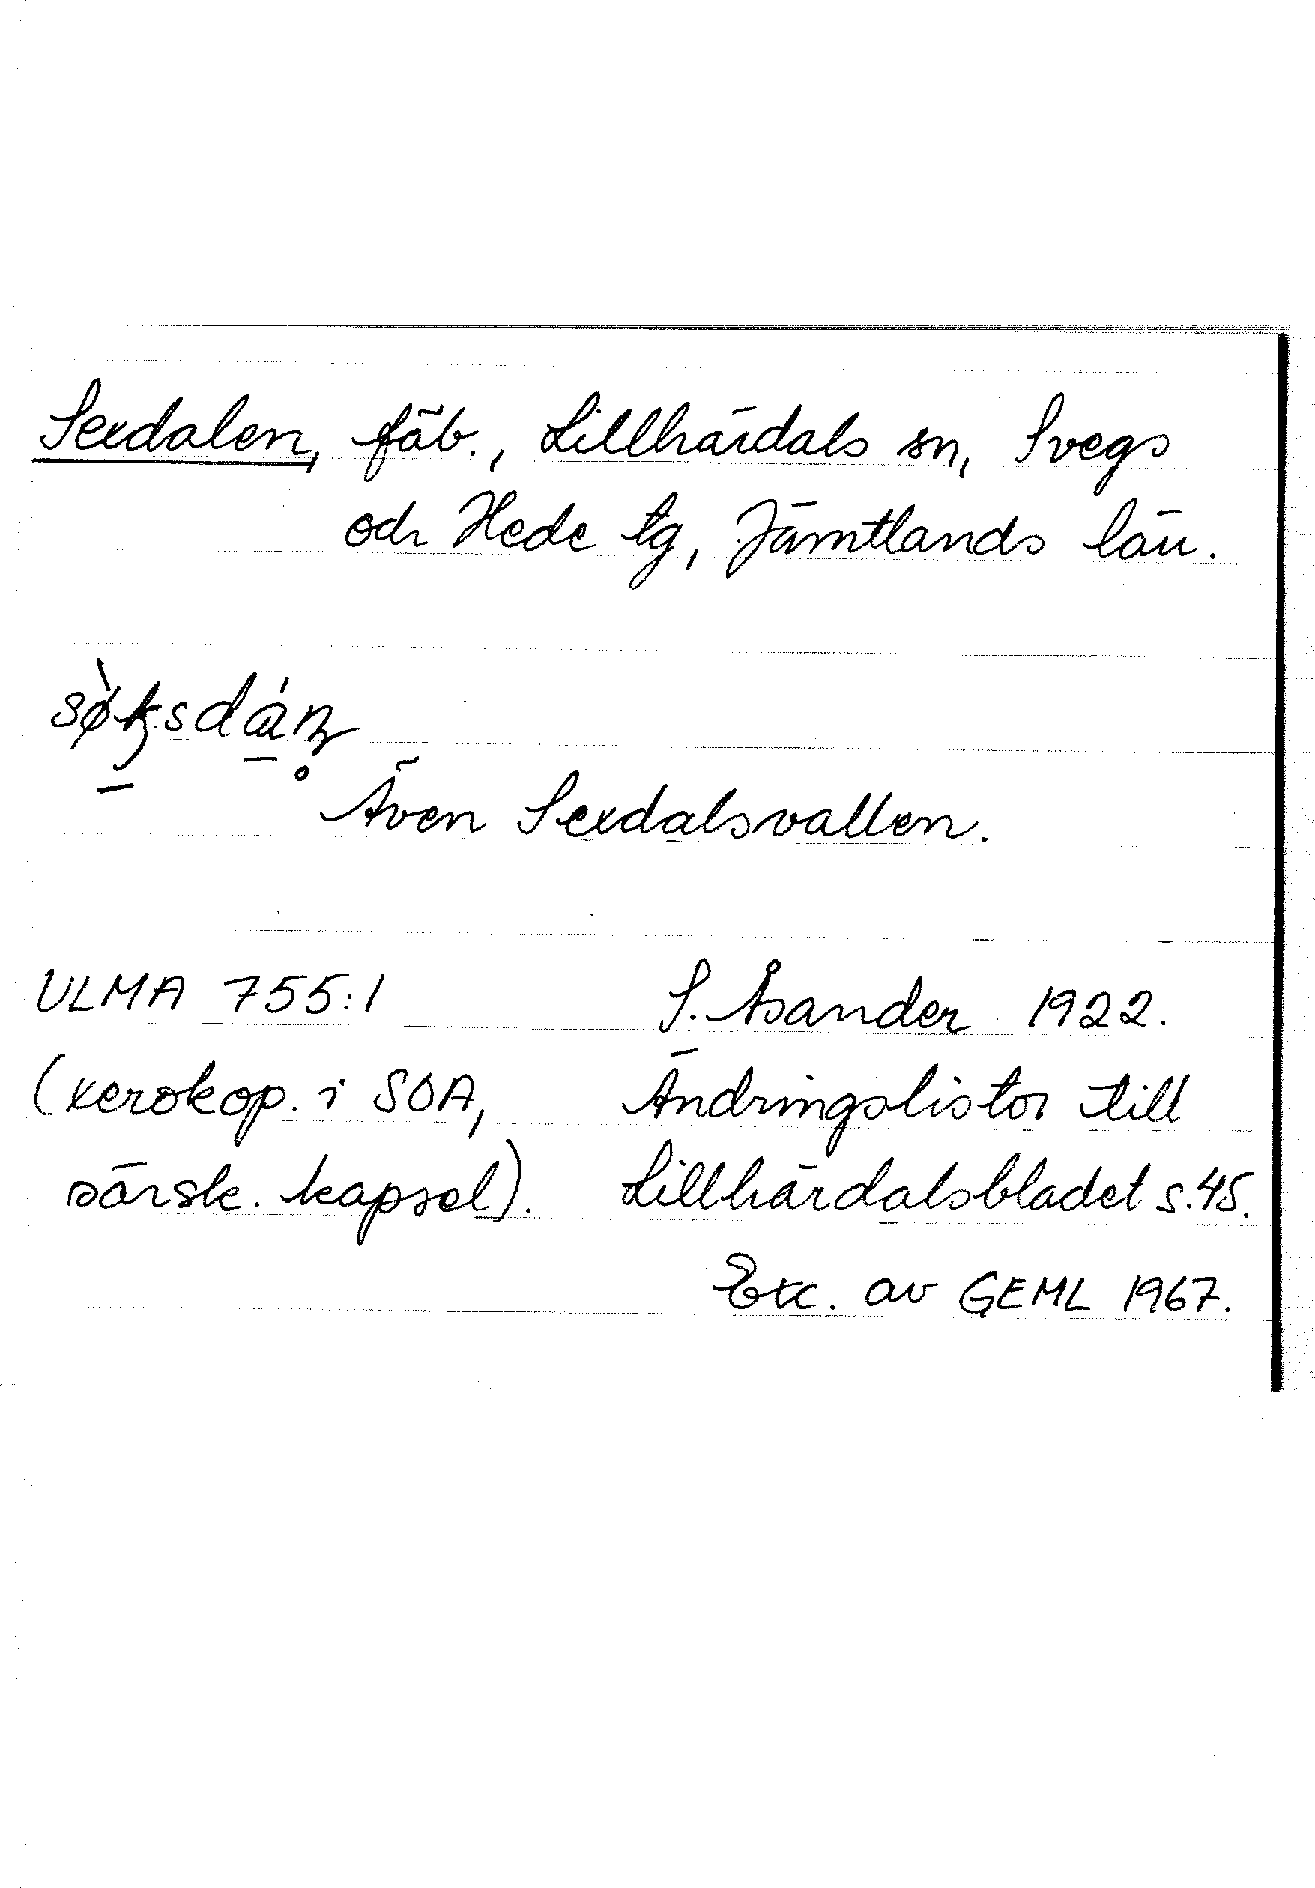 Sexdalen, fäb., Lillhärdals sn, Svegs
och Hede tg, Jämtlands län.
Även Sexdalsvallen.
ULMA 755:1 S. Åsander 1922.
(xerokop. i SOA, Ändringslistor till
särsk. kapsel). Lillhärdalsbladet s. 45.
Exc. av GEML 1967.